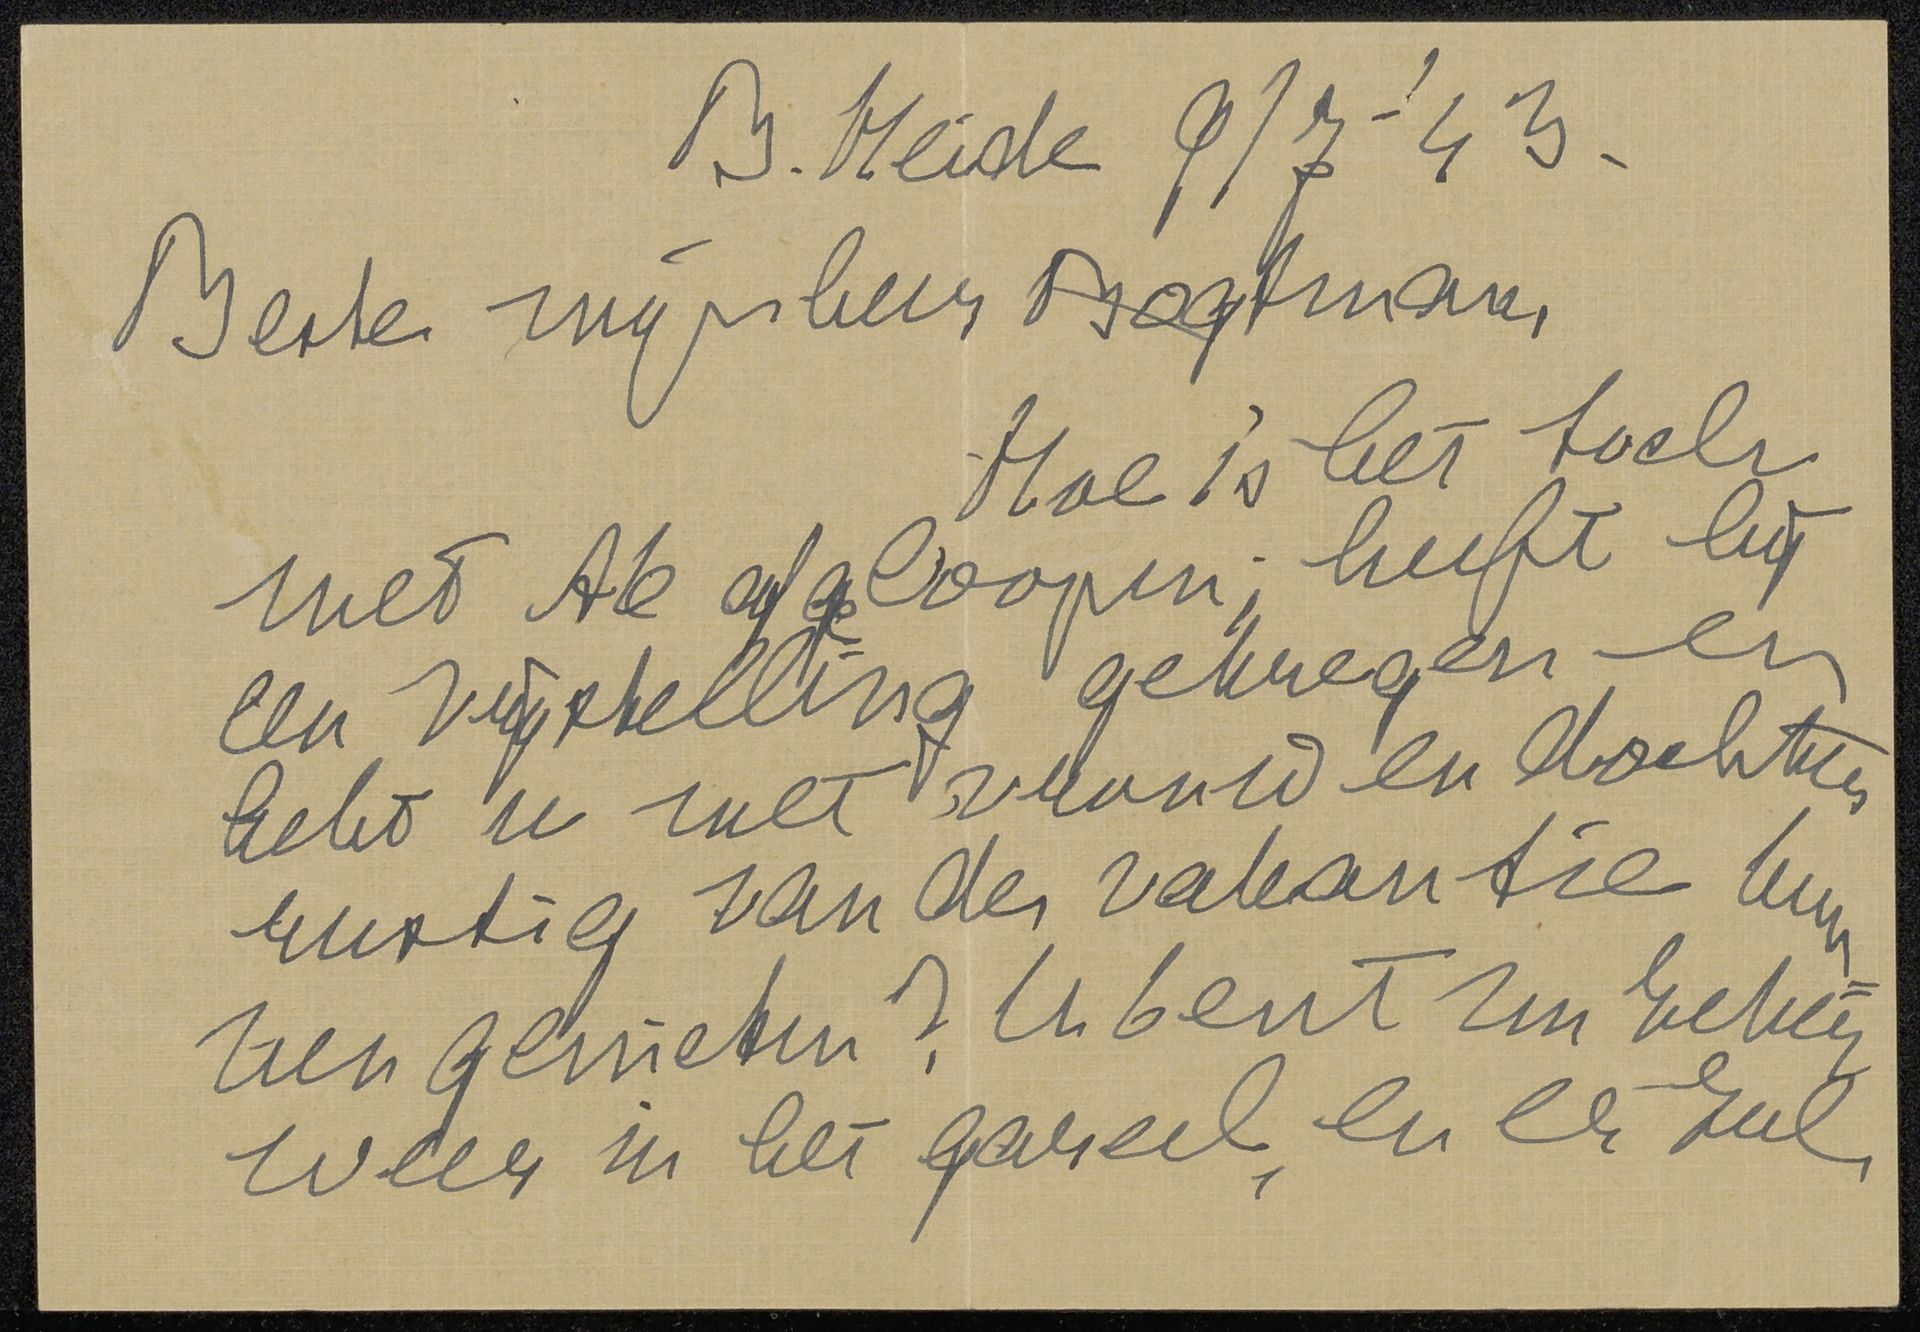 B. Heide 9/7-'43.
Beste mijnheer Bogtman,
Hoe is het toch
met Ab afgeloopen; heeft hij
een vrijstelling gekregen en
hebt u met vrouw en dochter
rustig van de vakantie kun-
nen genieten? U bent nu
weer in het gareel, en er zal